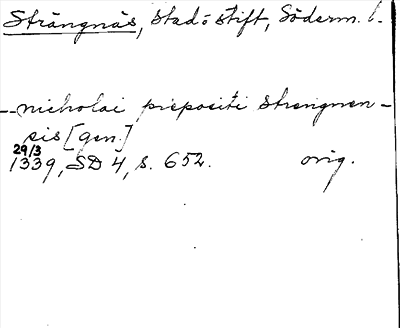 Strängnäs, stad o stift, Söderm. l.
-- nicholai prepositi strengnen-
sis [gen.]
29/3
1339, SD 4, s. 652. orig.